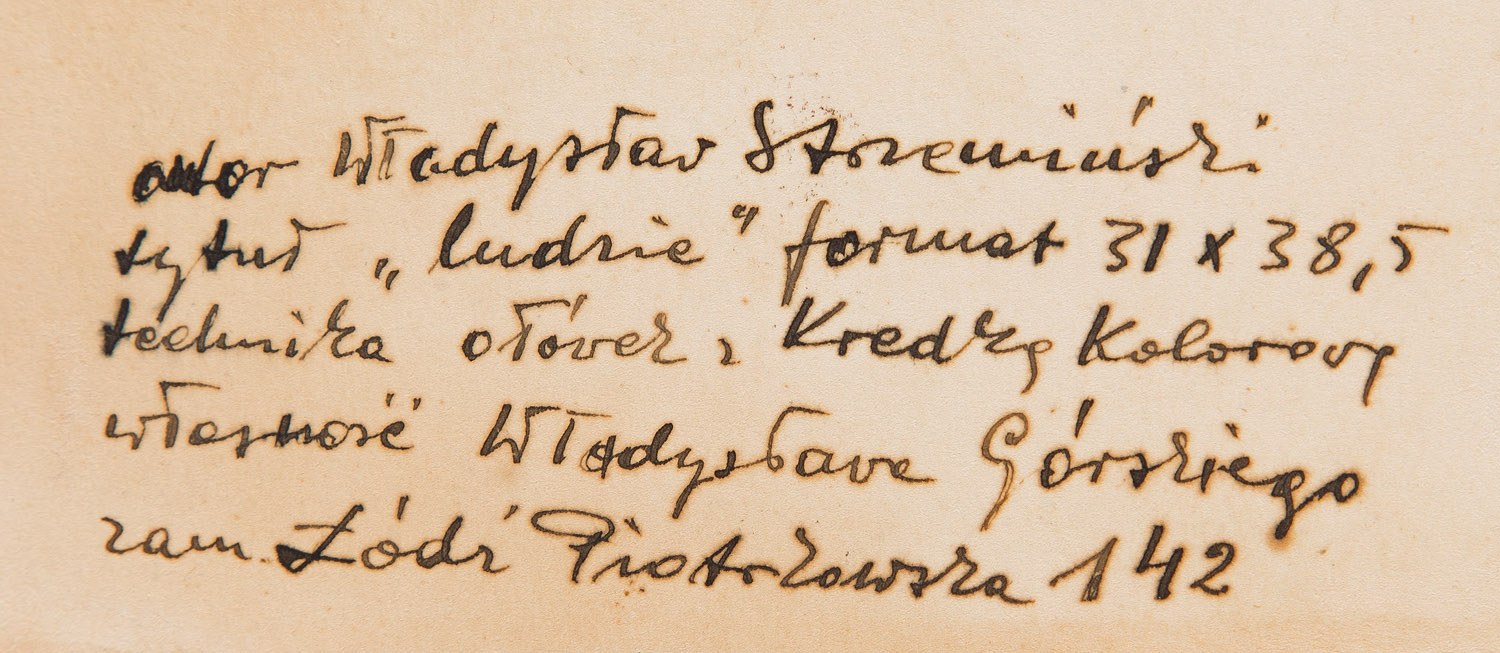 autor Władysław Strzemiński
tytuł „ludzie” format 31 x 38,5
technika ołówek, Kredką Kolorową
własność Władysława Górskiego
zam Łódź Piotrkowska 142